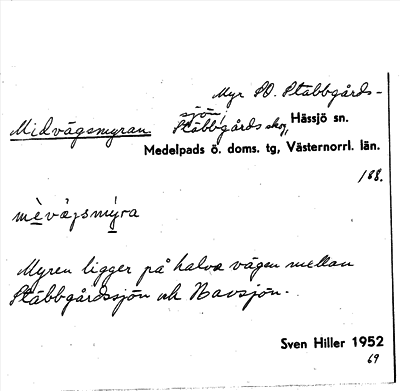 Myr SO. Stabbgårds-
sjön,
Midvägsmyran Stabbgårds skog, Hässjö sn.
Medelpads ö. doms. tg, Västernorrl. län.
188.
mèvä̀gsmýra
Myren ligger på halva vägen mellan
Stäbbgårdssjön och Navsjön.
Sven Hiller 1952
69